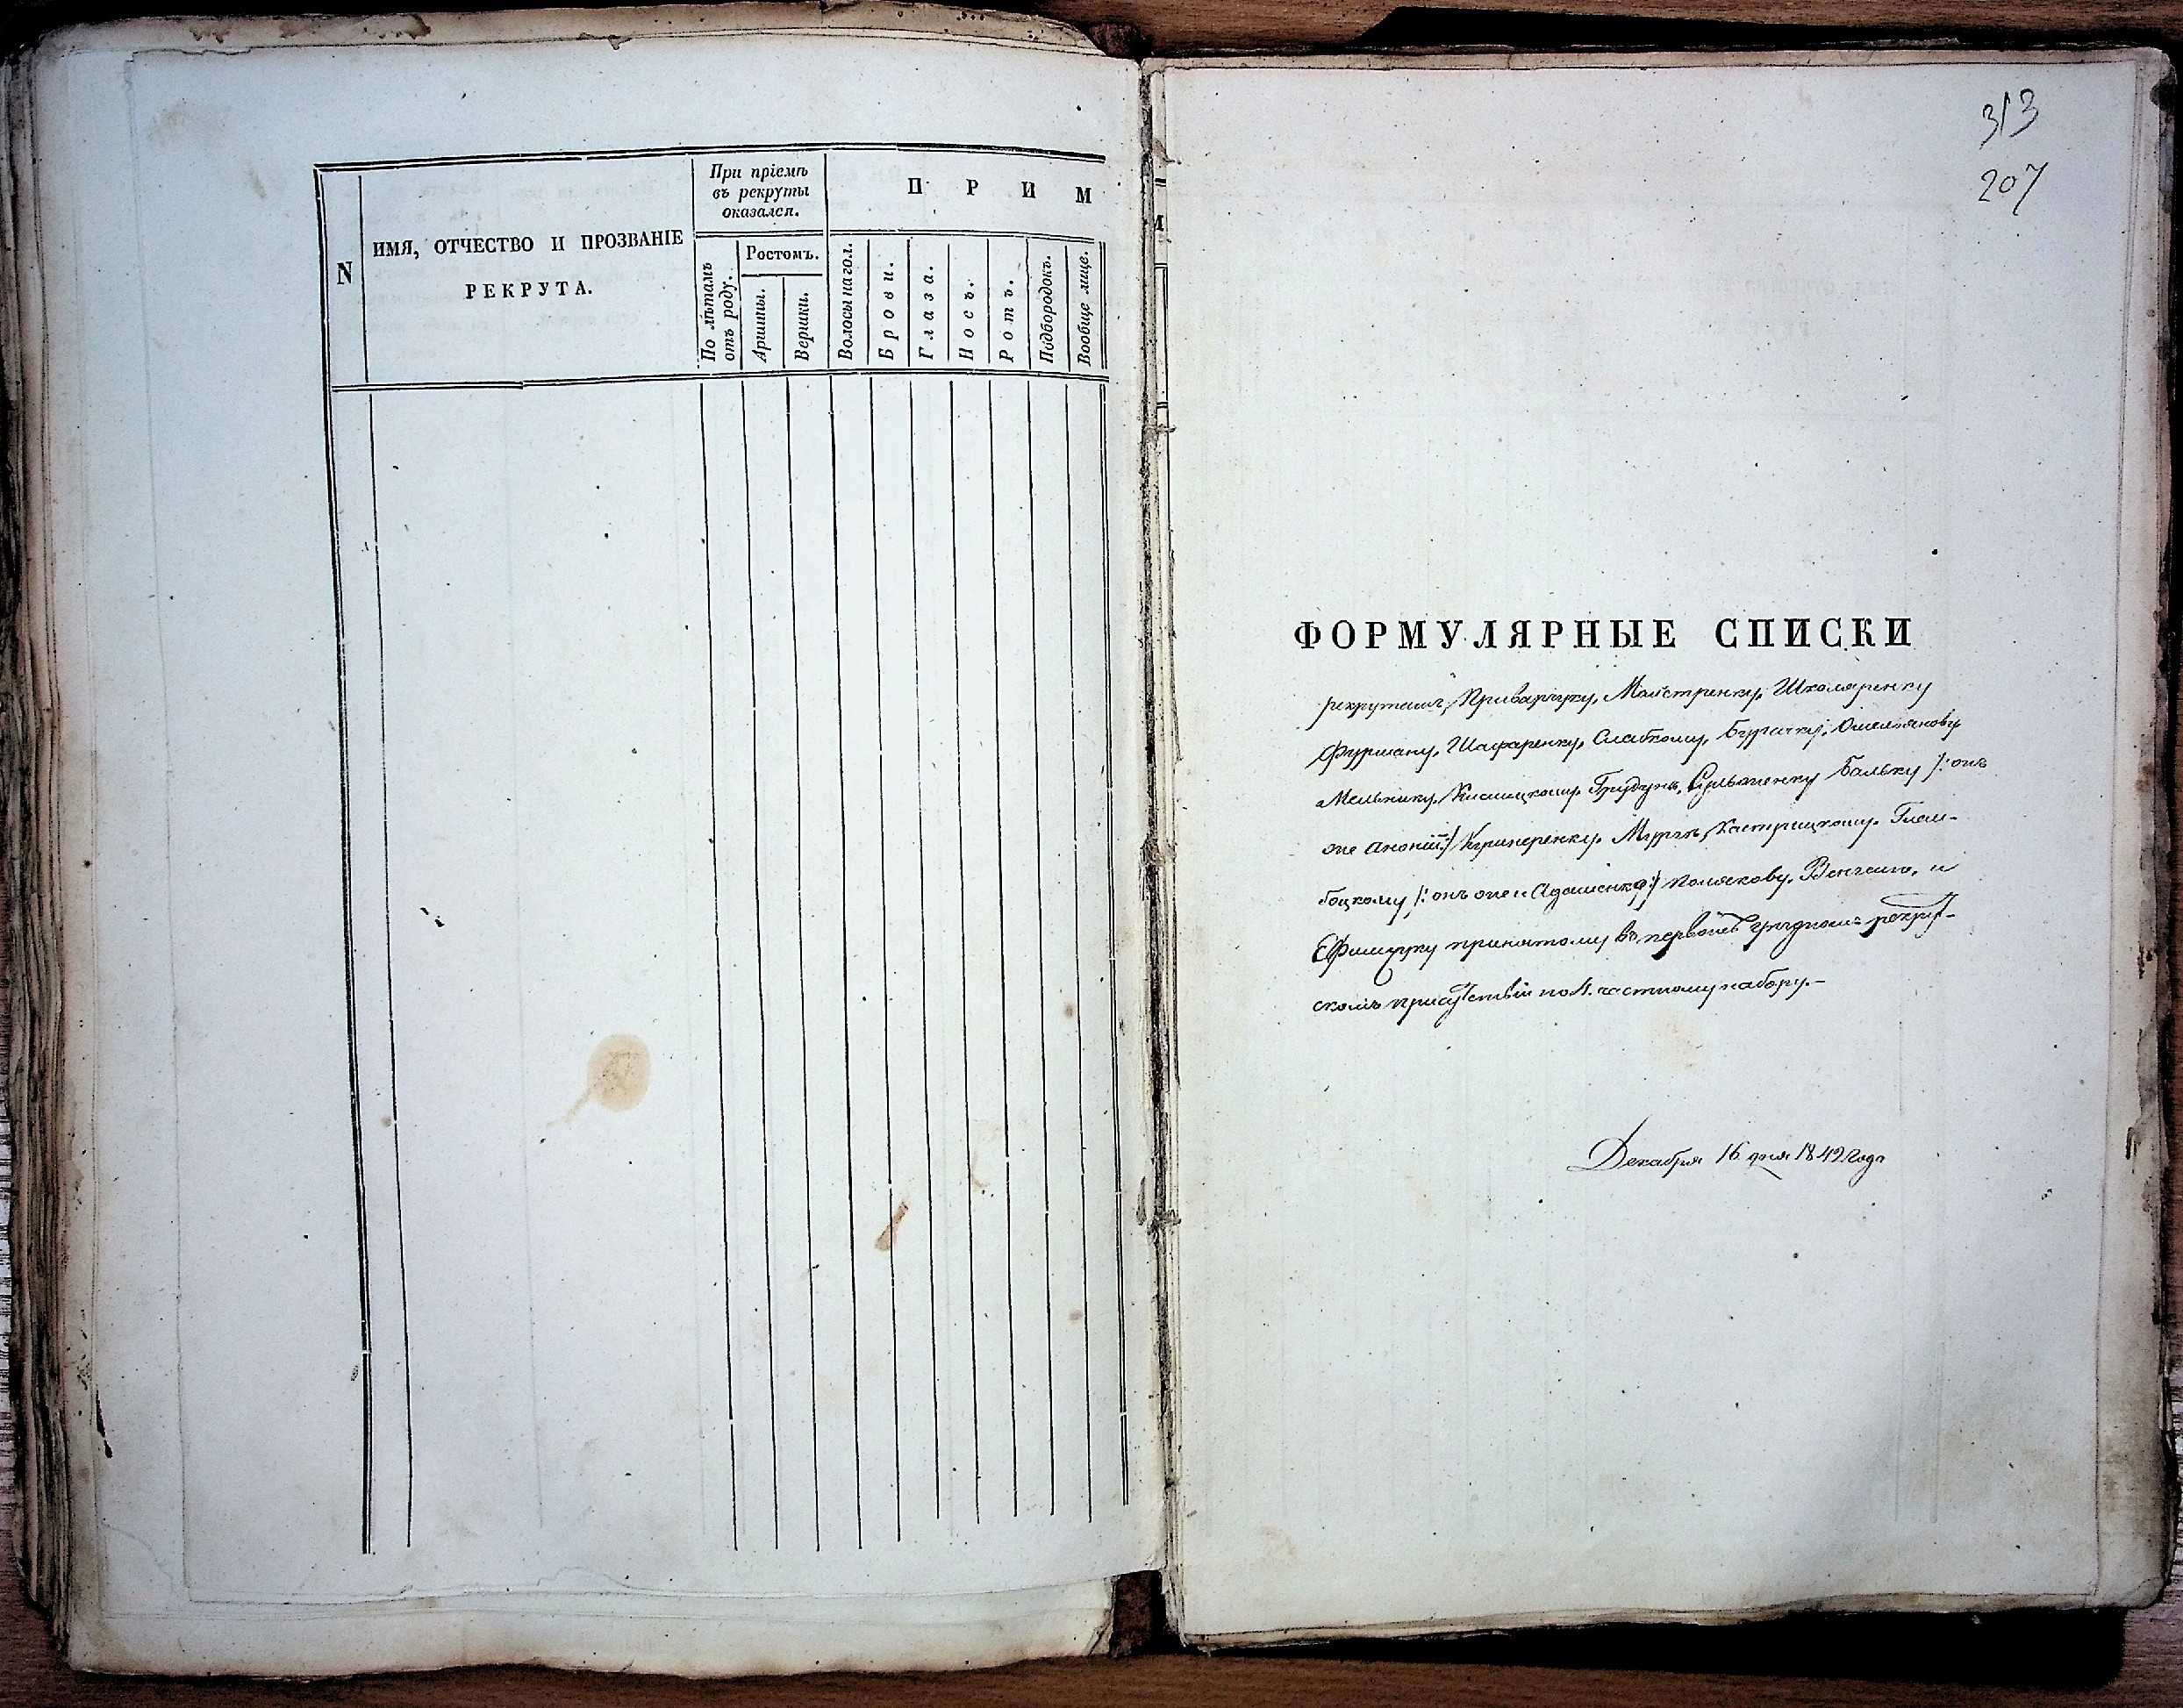 N
ИМЯ, ОТЧЕСТВО И ПРОЗВАНІЕ
РЕКРУТА.
При пріемѣ
въ рекруты
оказался.
По лѣтамъ
отъ роду.
Ростомъ.
Аршины.
Вершки.
П Р И М
Волосы на гол.
Брови.
Глаза.
Носъ.
Ротъ.
Подбородокъ.
Вообще лице.
313
207
ФОРМУЛЯРНЫЕ СПИСКИ
рекрутамъ, Приварчуку, Майстренку, Школяренку
Фурману, Шафаренку, Слабкому, Бурачку, Омельянову
Мельнику, Кислицкому Грудунъ, Бальку /: онъ
же /: Кушнеренку, Кастрицкому, Глам-
боцкому /: онъ же и Адаменко :/ Полякову, и
Ефимчуку принятому въ первомъ уѣздномъ рекрут-
скомъ присутствіи по 4. частному набору.-
Декабря 16 дня 1842 Года